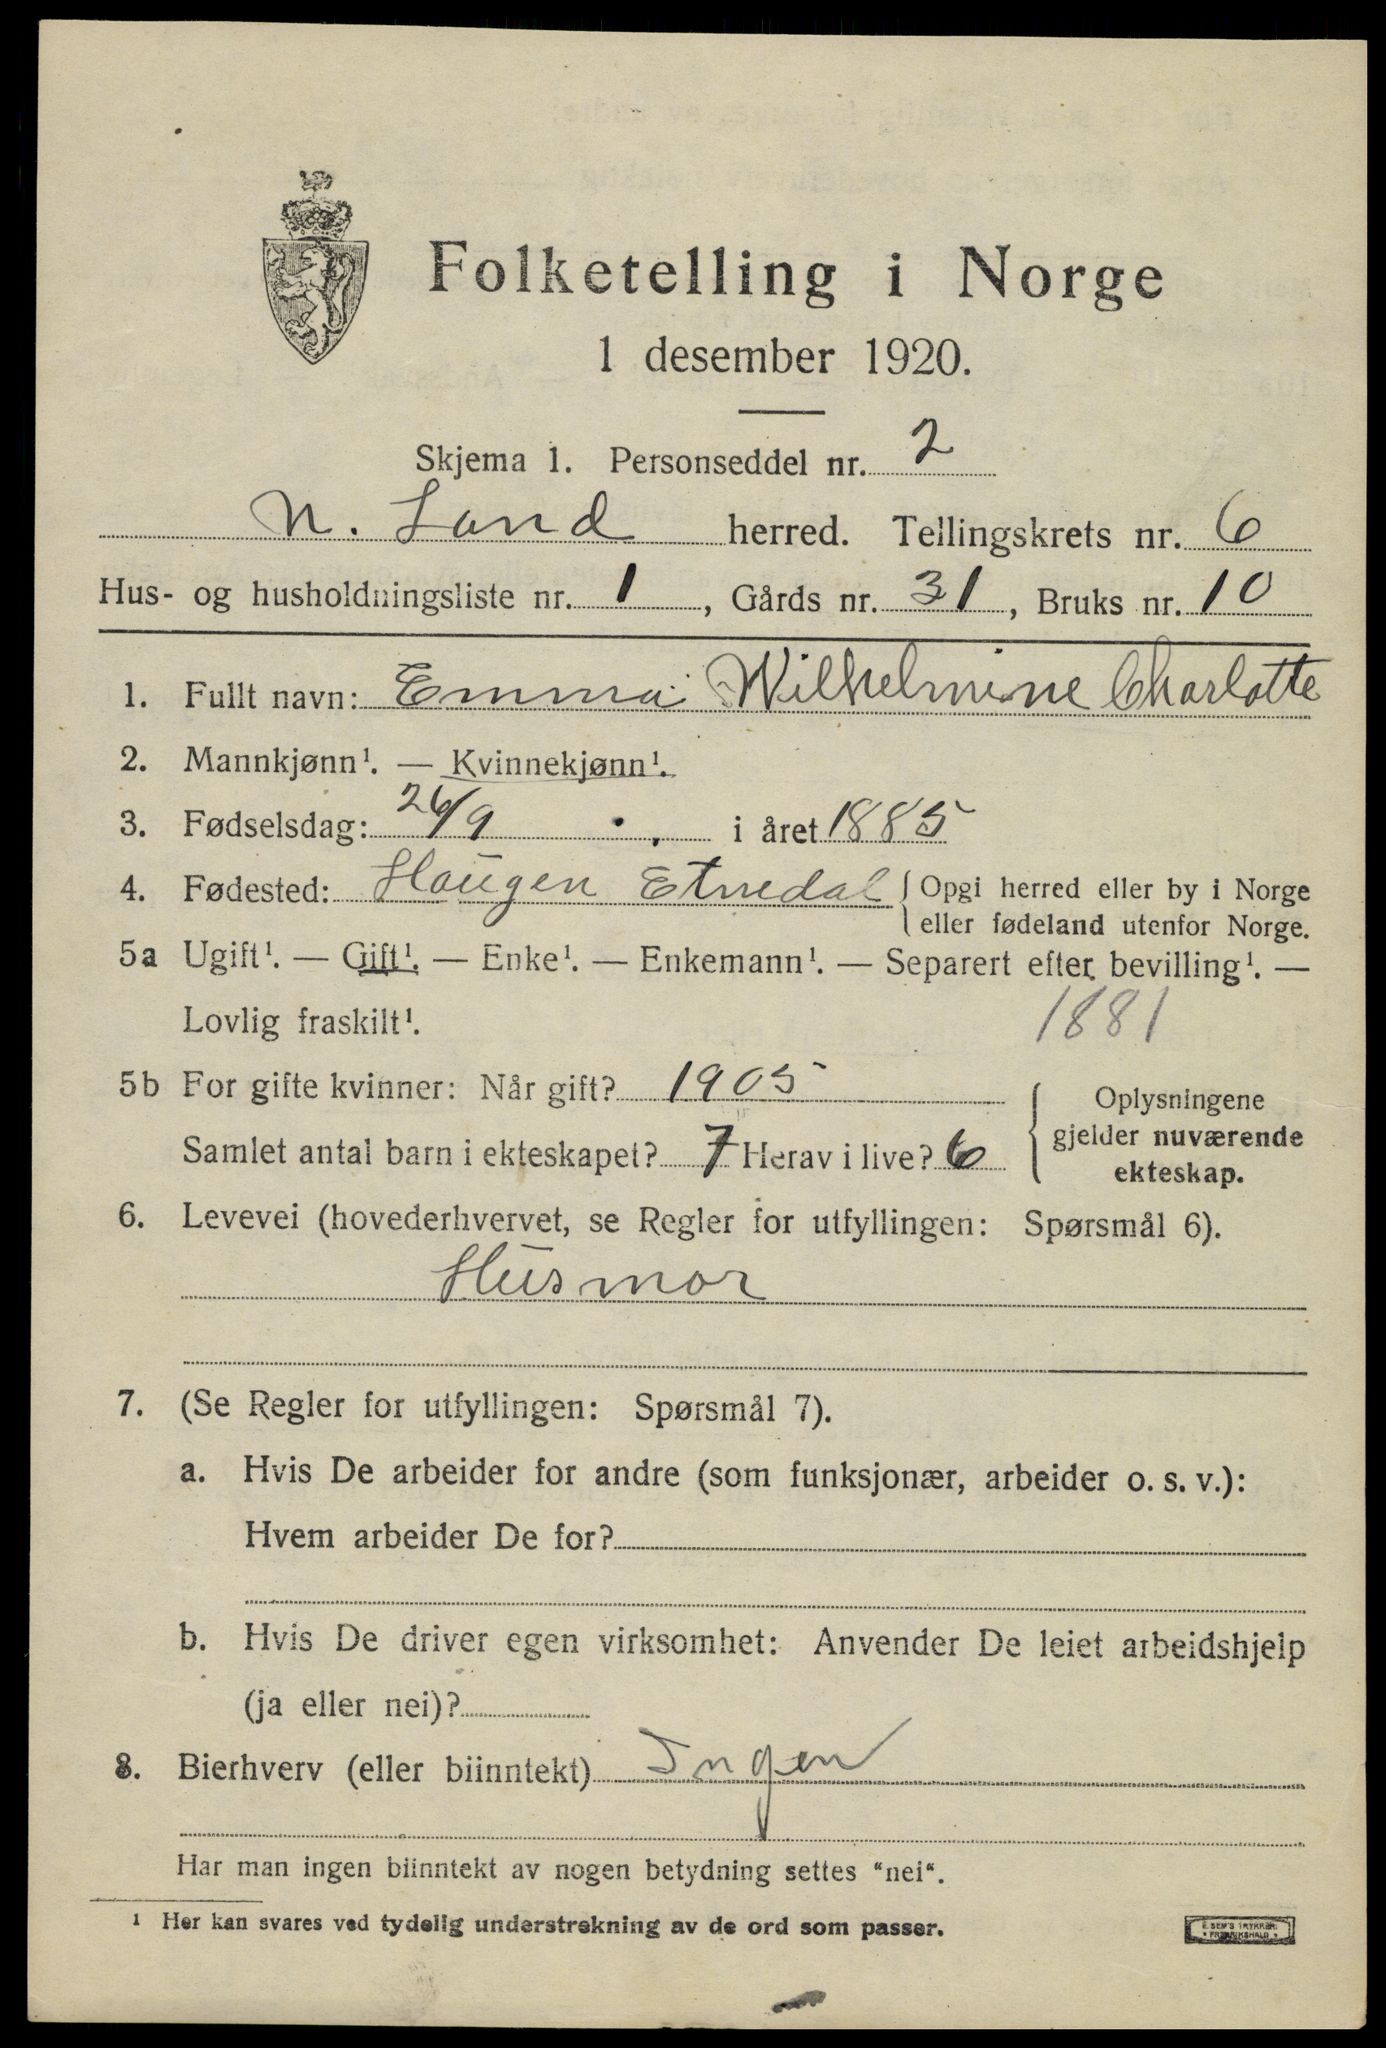 Folketelling i Norge
1 desember 1920.
Skjema 1. Personseddel nr. 2
N. Land herred. Tellingskrets nr. 6
Hus- og husholdningsliste nr. 1, Gårds nr. 31, Bruks nr. 10
1. Fullt navn: Emma Wilhelmine Charlotte
2. Mannkjønn¹. — Kvinnekjønn¹.
3. Fødselsdag: 26/9 i året 1885
4. Fødested: Haugen Etnedal { Opgi herred eller by i Norge
eller fødeland utenfor Norge.
5a Ugift¹. — Gift¹. — Enke¹. — Enkemann¹. — Separert efter bevilling¹. —
Lovlig fraskilt¹. 1881
5b For gifte kvinner: Når gift? 1905
Samlet antal barn i ekteskapet? 7 Herav i live? 6
{ Oplysningene
gjelder nuværende
ekteskap.
6. Levevei (hovederhvervet, se Regler for utfyllingen: Spørsmål 6).
Husmor
7. (Se Regler for utfyllingen: Spørsmål 7).
a. Hvis De arbeider for andre (som funksjonær, arbeider o. s. v.):
Hvem arbeider De for?
b. Hvis De driver egen virksomhet: Anvender De leiet arbeidshjelp
(ja eller nei)?
8. Bierhverv (eller biinntekt) Ingen
Har man ingen biinntekt av nogen betydning settes "nei".
¹ Her kan svares ved tydelig understrekning av de ord som passer.
E. SEM'S TRYKKERI
• FREDRIKSHALD •